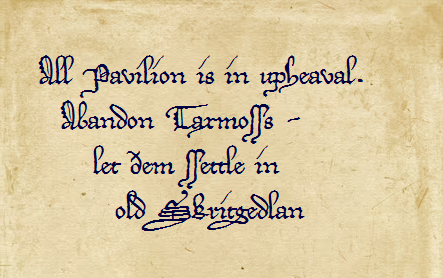 All Pavilion is in upheaval.
Abandon Tarmoss -
let dem settle in
old Skritgedlan